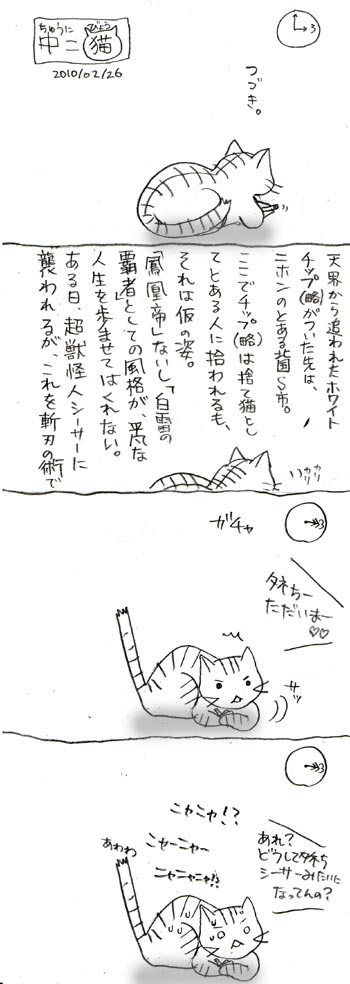 ちゅうに びょう
中二猫
2010/02/26
3
つづき。
天界から追われたホワイト
チップ(略)がついた先は、
ニホンのとある北国S市。
ここでチップ(略)は捨て猫とし
てとある人に拾われるも、
それは仮の姿。
「鳳凰帝」ないし「白雪の
覇者」としての風格が、平凡な
人生を歩ませてはくれない。
ある日、超獣怪人シーサーに
襲われるが、これを斬刃の術で
カリ
カリ
3
ガチャ
タネちー
ただいまー
♡♡
サッ
3
あれ?
どうしてタネち
シーサーみたいに
なってんの?
ニャニャ!?
ニャーニャー
ニャニャニャ!?
あわわ